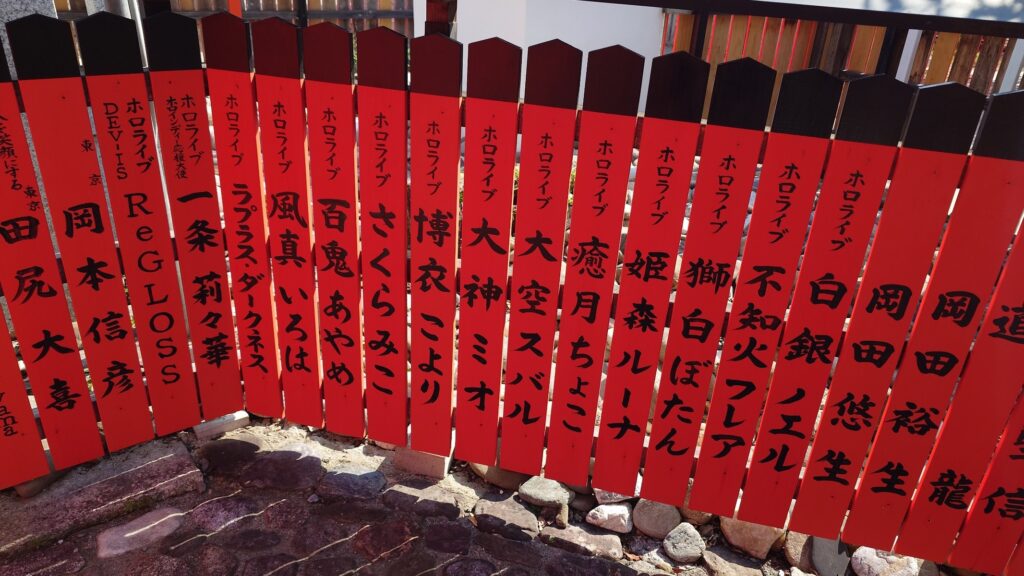 信
道 龍
岡田 裕生
岡田 悠生
ホロライブ 白銀 ノエル
ホロライブ 不知火フレア
ホロライブ 獅白ぼたん
ホロライブ 姫森 ルーナ
ホロライブ 癒月ちょこ
ホロライブ 大空スバル
ホロライブ 大神 ミオ
ホロライブ 博衣こより
ホロライブ さくらみこ
ホロライブ 百鬼 あやめ
ホロライブ 風真いろは
ホロライブ ラプラス・ダークネス
ホロライブ
一条 莉々華
ホロライブ
DEV-IS
ReGLOSS
東京 岡本信彦
東京 田尻大喜